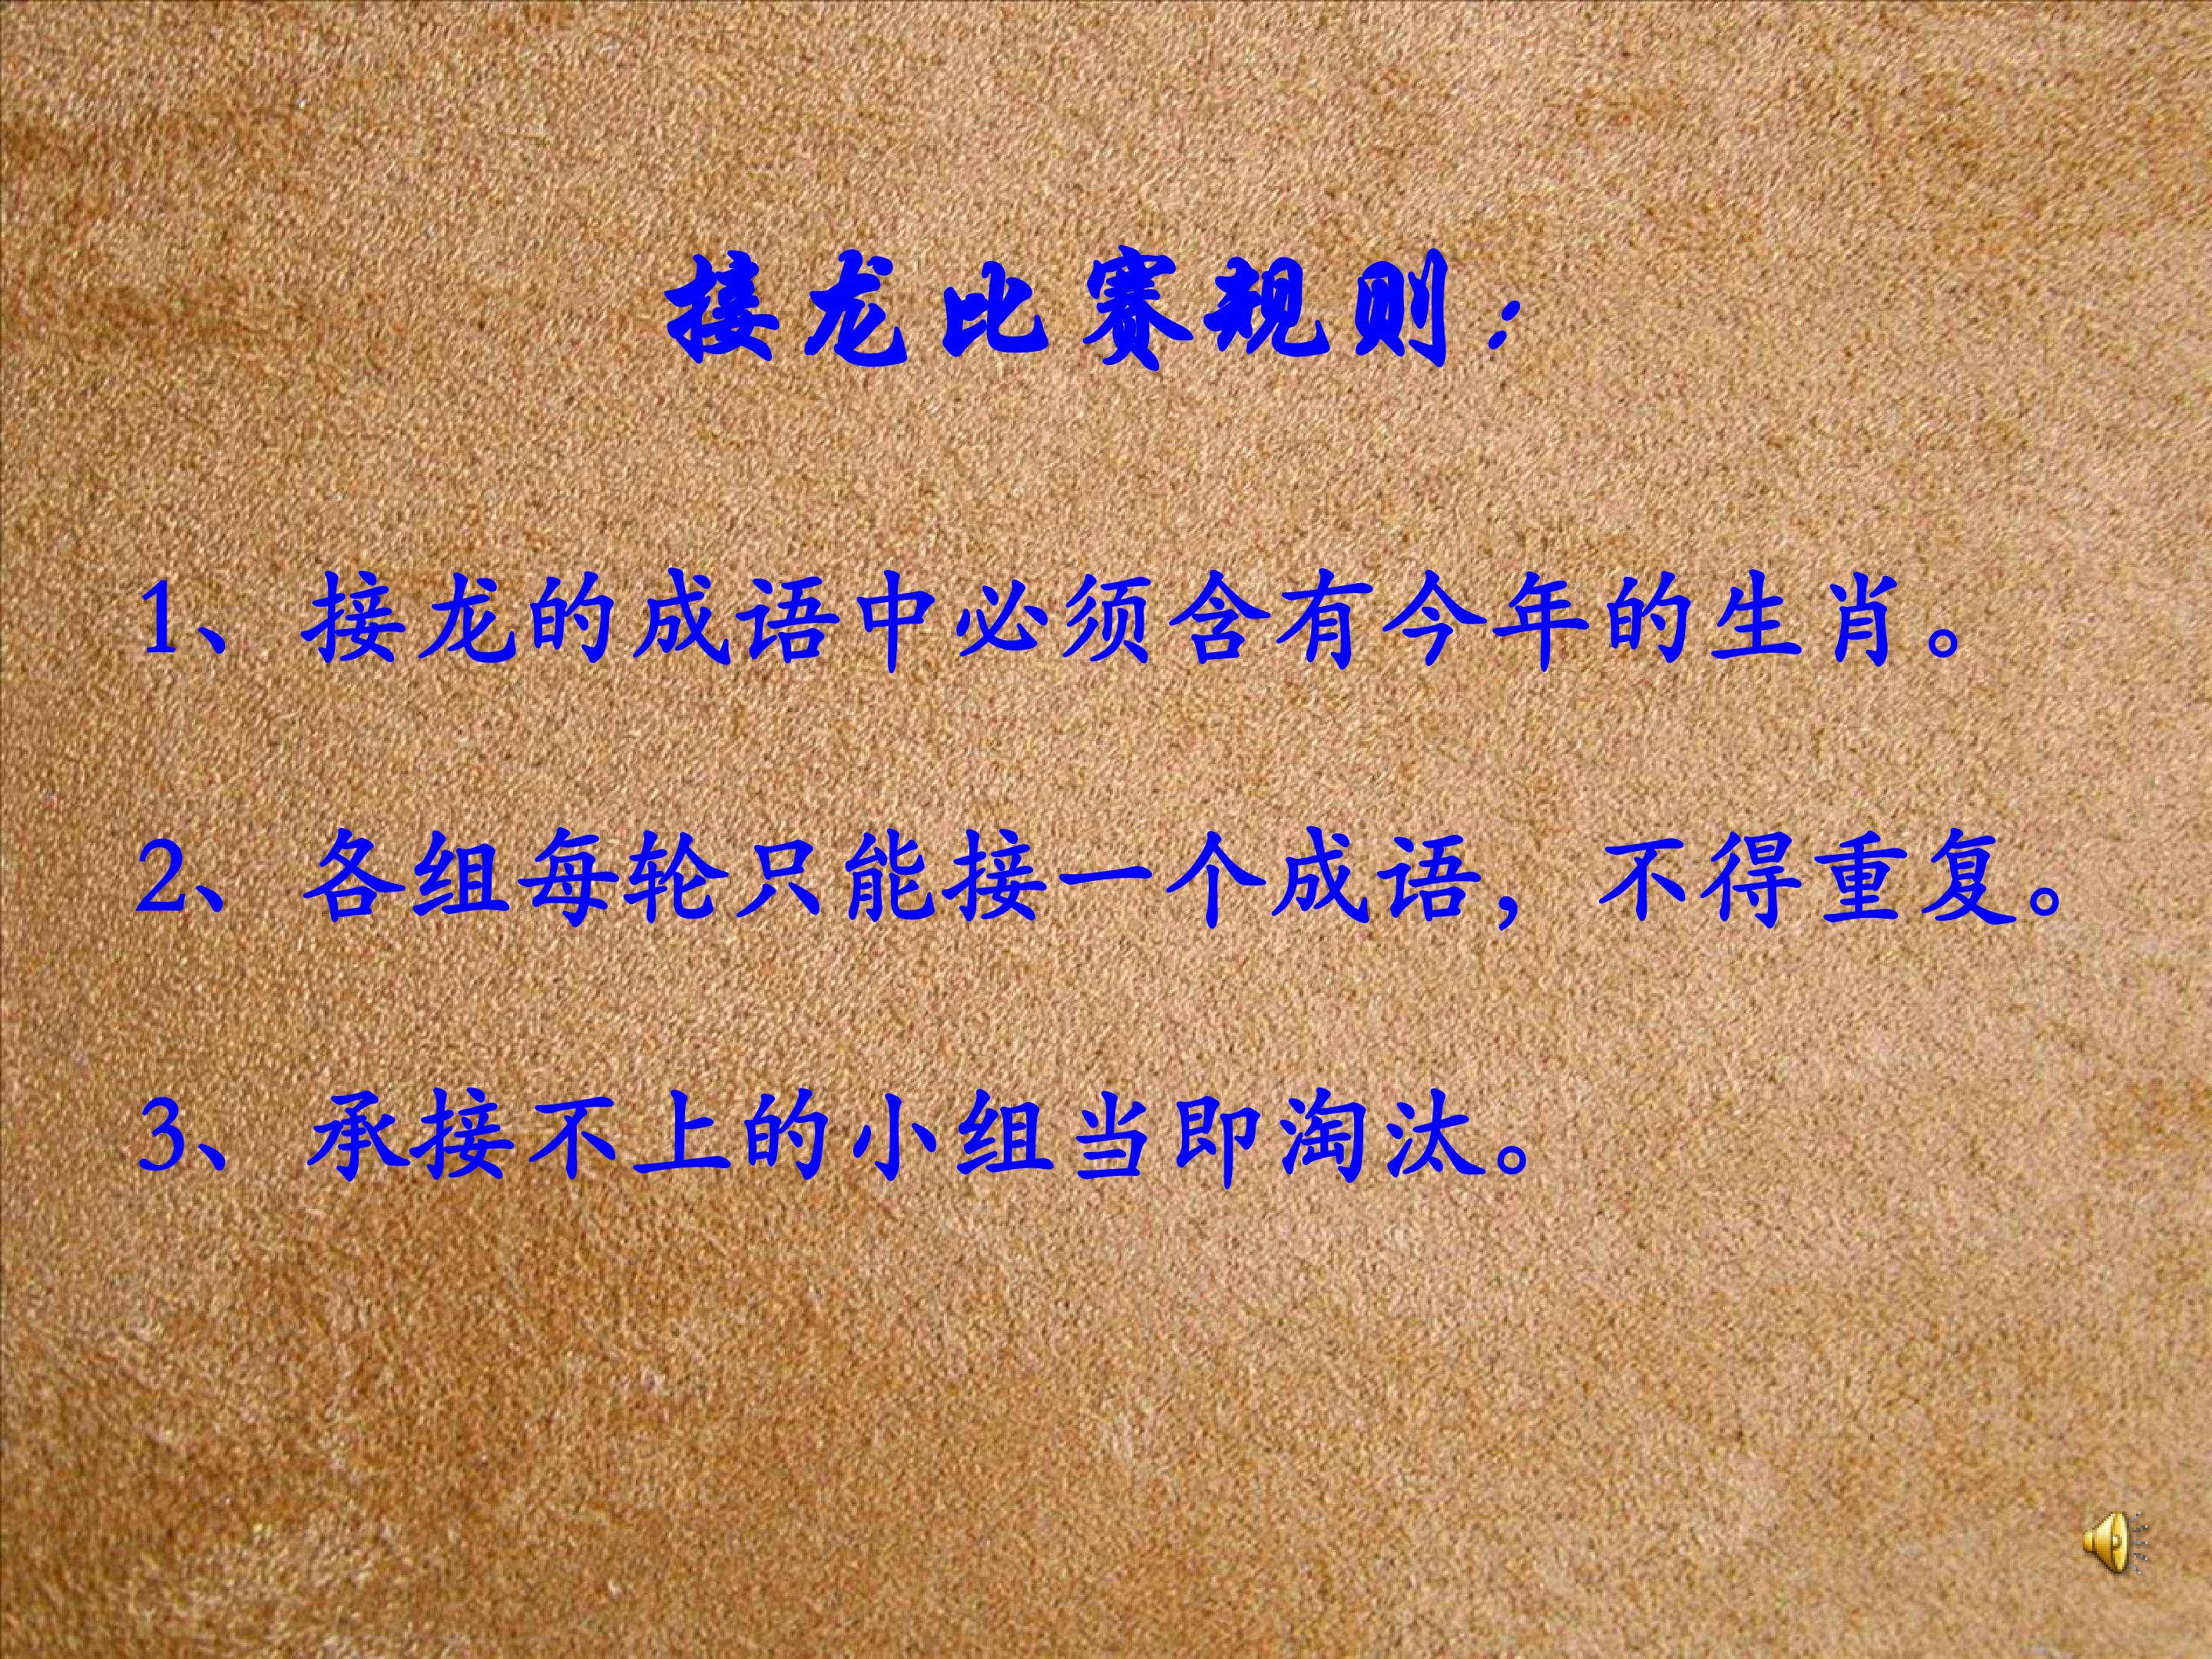 接龙比赛规则：
1、接龙的成语中必须含有今年的生肖。
2、各组每轮只能接一个成语，不得重复。
3、承接不上的小组当即淘汰。